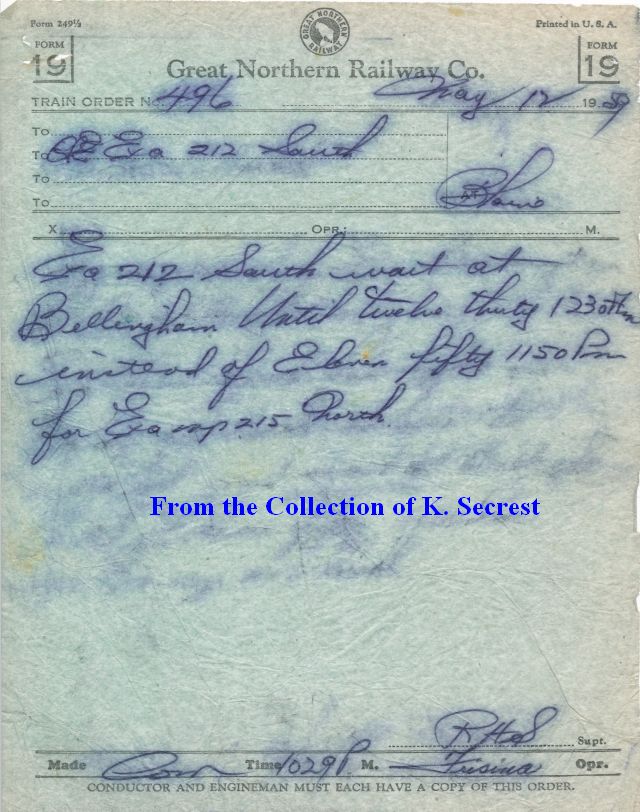 Form 249½
Printed in U. S. A.
GREAT NORTHERN RAILWAY
FORM 19
FORM 19
Great Northern Railway Co.
TRAIN ORDER No. 496 May 12 19
To
To C&E Exa 212 South
To
To AT Blaine
X OPR.; M.
Exa 212 South wait at
Bellingham Until twelve thirty 1230 Am
instead of Eleven fifty 1150 Pm
for Exa 215 North.
From the Collection of K. Secrest
Supt.
Made Com Time 1029P M. Opr.
CONDUCTOR AND ENGINEMAN MUST EACH HAVE A COPY OF THIS ORDER.